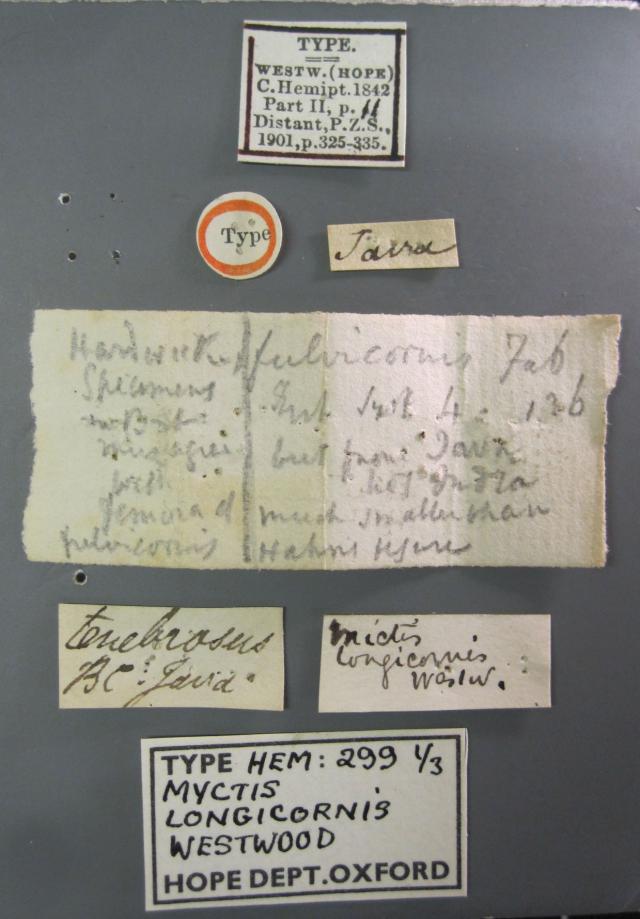 TYPE.
WESTW. (HOPE)
C.Hemipt.1842
Part II, p. 11
Distant, P.Z.S.,
1901, p.325-335.
Type
Java
Hardwick
Specimens
in Brit
femora of
fulvicornis
fulvicornis Fab
Syst 4. 126
but from Java
not India
much smaller than
Hahn's figure
tenebrosus
BC: Java.
mictis
longicornis
Westw.
TYPE HEM: 299 1/3
MYCTIS
LONGICORNIS
WESTWOOD
HOPE DEPT.OXFORD